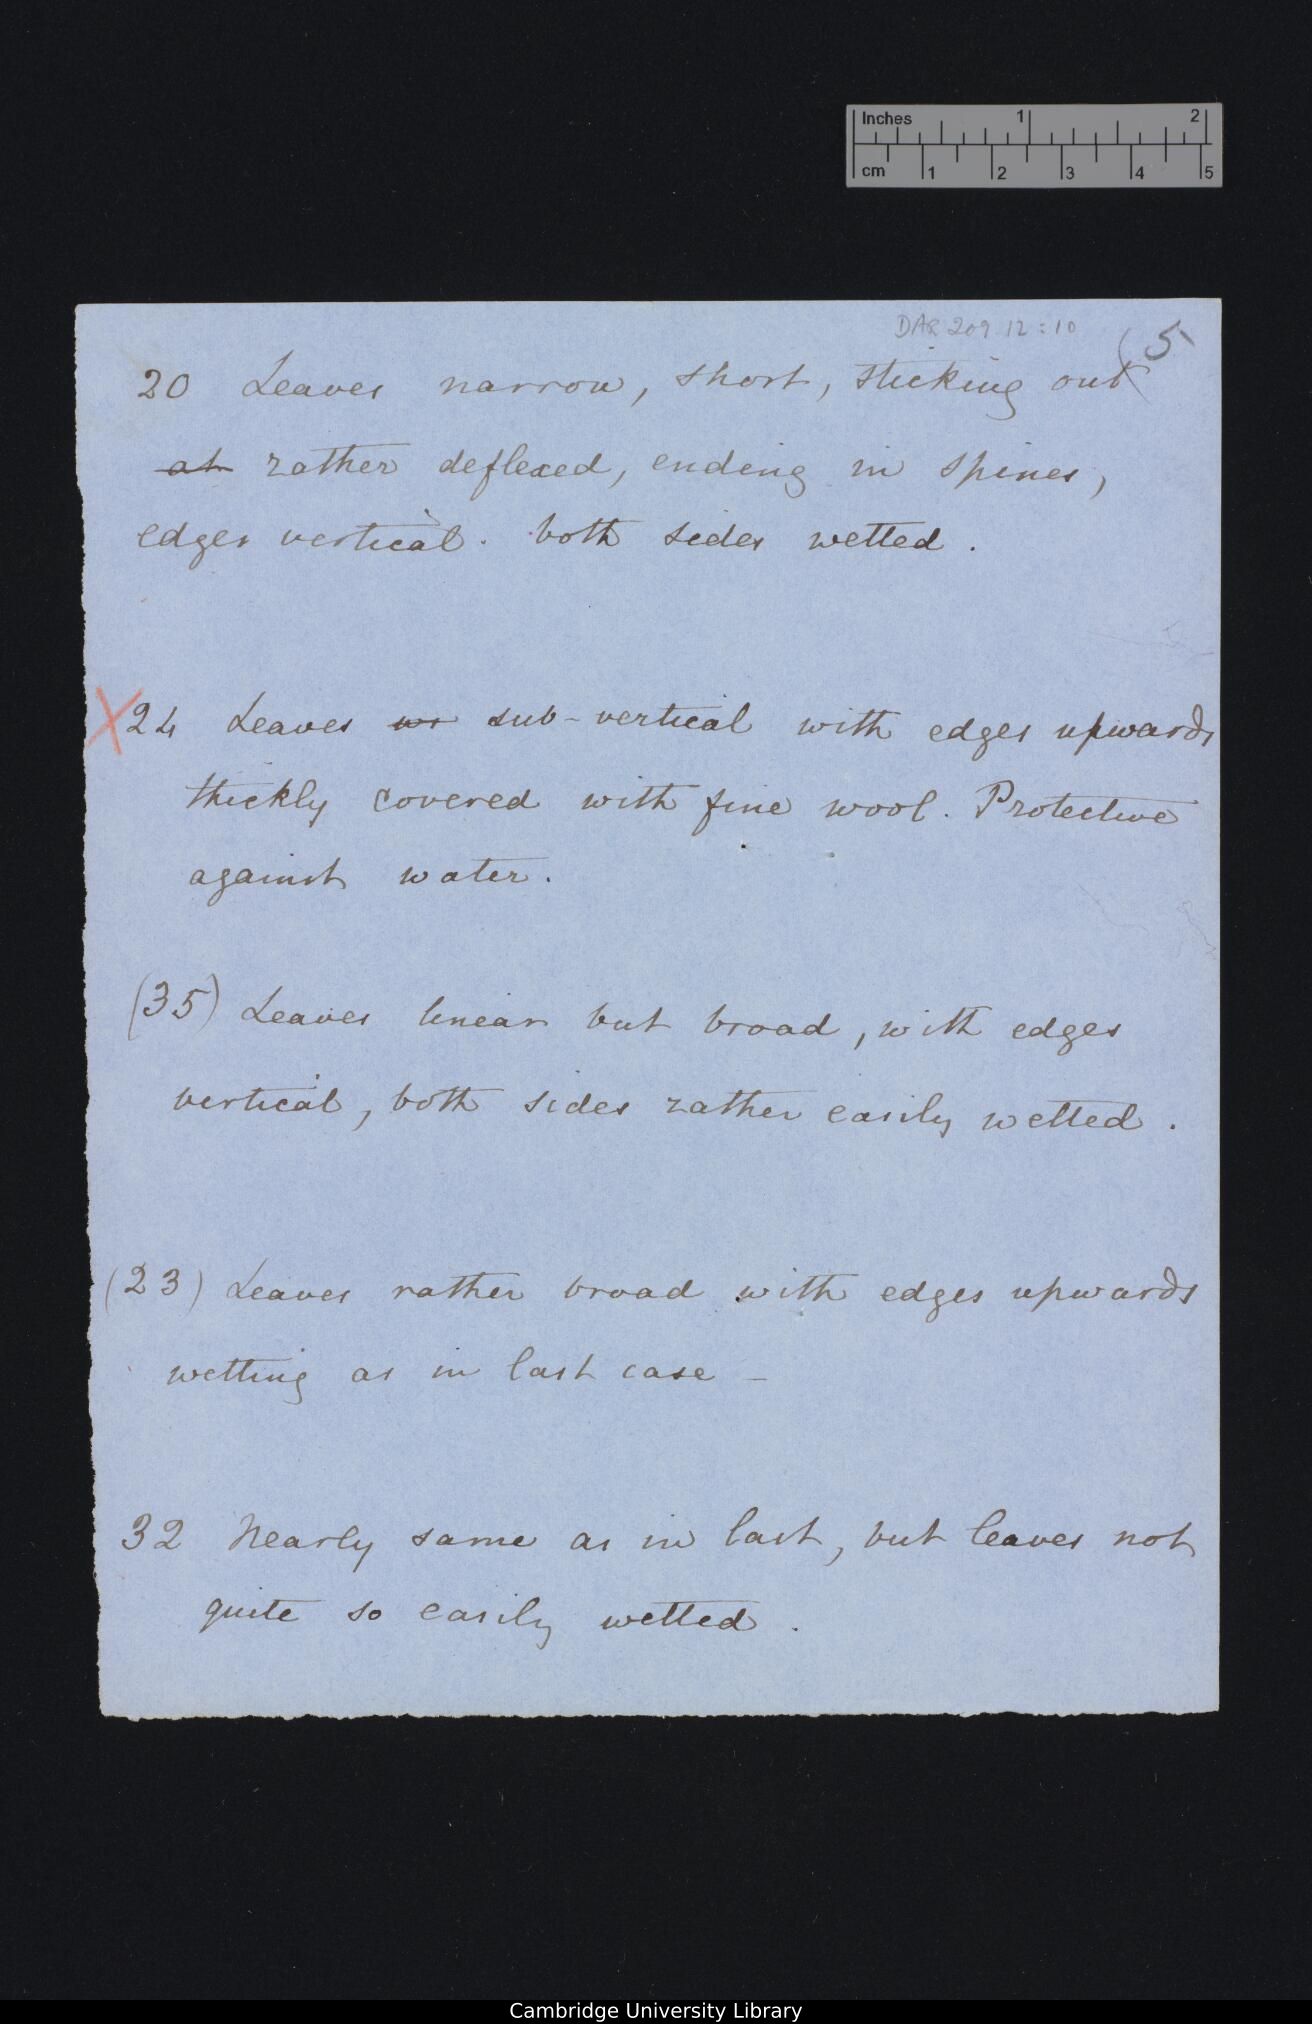 Inches 1 2
cm 1 2 3 4 5
DAR 209.12:10
(5
20 Leaves narrow, short, sticking out
at rather deflexed, ending in spines,
edges vertical. both sides wetted.
X 24 Leaves ws sub-vertical with edges upwards
thickly covered with fine wool. Protective
against water.
(35) Leaves linear but broad, with edges
vertical, both sides rather easily wetted.
(23) Leaves rather broad with edges upwards
wetting as in last case –
32 Nearly same as in last, but leaves not
quite so easily wetted.
Cambridge University Library